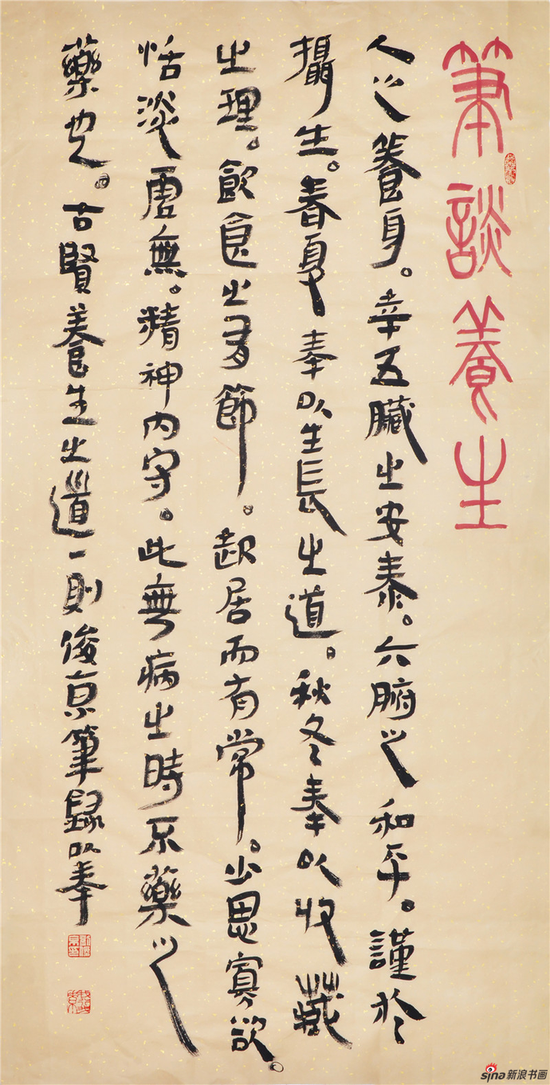 筆談養生
人之養身。幸五臟之安泰。六腑之和平。謹於
攝生。春夏奉以生長之道。秋冬奉以收藏
之理。飲食之有節。起居而有常。少思寡欲。
恬淡虛無。精神内守。此無病之時不藥之
藥也。古賢養生之道一則俊京筆録以奉
sina新浪书画